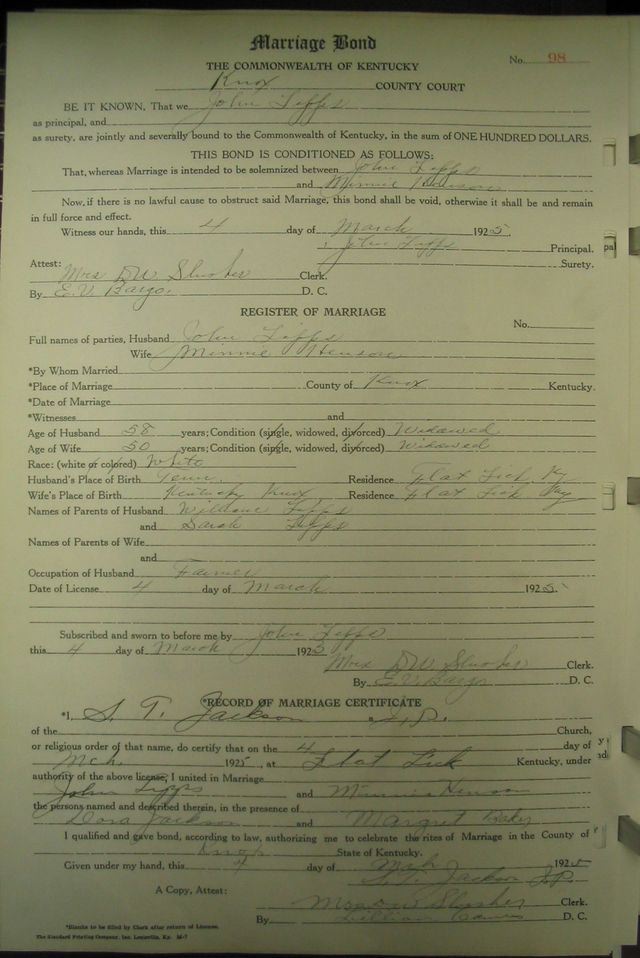 Marriage Bond
No. 98
THE COMMONWEALTH OF KENTUCKY
Knox COUNTY COURT
BE IT KNOWN, That we John Lipps
as principal, and
as surety, are jointly and severally bound to the Commonwealth of Kentucky, in the sum of ONE HUNDRED DOLLARS.
THIS BOND IS CONDITIONED AS FOLLOWS:
That, whereas Marriage is intended to be solemnized between John Lipps
and Minnie Henson
Now, if there is no lawful cause to obstruct said Marriage, this bond shall be void, otherwise it shall be and remain
in full force and effect.
Witness our hands, this 4 day of March 1925.
John Lipps Principal.
Attest: Surety.
Mrs D.W. Slusher Clerk.
By E.V. Bargo. D. C.
REGISTER OF MARRIAGE
No.
Full names of parties, Husband John Lipps
Wife Minnie Henson
*By Whom Married
*Place of Marriage County of Knox Kentucky.
*Date of Marriage
*Witnesses and
Age of Husband 58 years; Condition (single, widowed, divorced) Widowed
Age of Wife 50 years; Condition (single, widowed, divorced) Widowed
Race: (white or colored) White
Husband's Place of Birth Tenn. Residence Flat Lick, Ky
Wife's Place of Birth Kentucky Knox Residence Flat Lick Ky
Names of Parents of Husband William Lipps
and Sarah Lipps
Names of Parents of Wife
and
Occupation of Husband Farmer
Date of License 4 day of March 1925.
Subscribed and sworn to before me by John Lipps
this 4 day of March 1925
Mrs D.W. Slusher Clerk.
By E.V. Bargo D. C.
*RECORD OF MARRIAGE CERTIFICATE
*I, S. T. Jackson J.P.
of the Church,
or religious order of that name, do certify that on the 4 day of
Mch. 1925, at Flat Lick Kentucky, under
authority of the above license, I united in Marriage
John Lipps and Minnie Henson
the persons named and described therein, in the presence of
Dora Jackson and Margret Baker
I qualified and gave bond, according to law, authorizing me to celebrate the rites of Marriage in the County of
Knox State of Kentucky.
Given under my hand, this day of Mch 1925
S.T. Jackson J.P.
A Copy, Attest:
Slusher Clerk.
By Lillian D. C.
*Blanks to be filled by Clerk after return of License.
The Standard Printing Company, Inc. Louisville, Ky. M-7